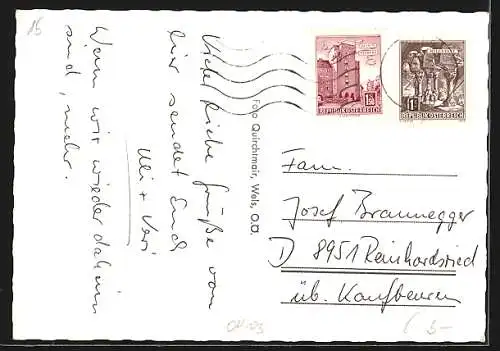 16
Viele liebe Grüße von
hier sendet Euch
Uli + Vevi
Wenn wir wieder daheim
sind, mehr.
Foto Quirchmair, Wels, O.Ö.
REPUBLIK ÖSTERREICH
REPUBLIK ÖSTERREICH
Fam.
Josef Braunegger
D 8951 Reinhardsried
üb. Kaufbeuren
5-